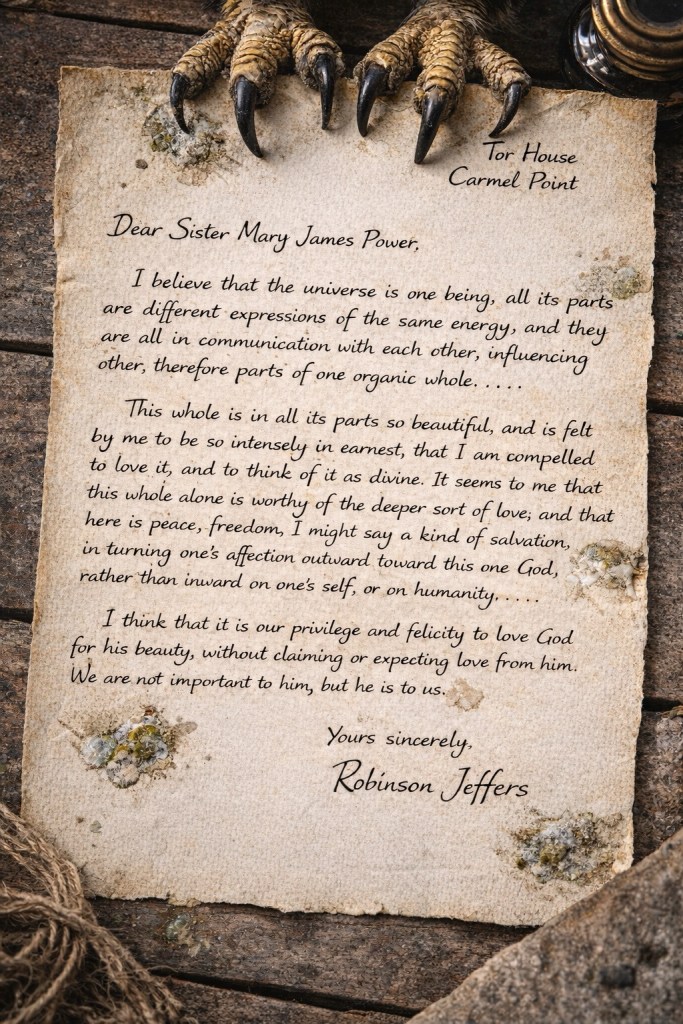 Tor House
Carmel Point
Dear Sister Mary James Power,
I believe that the universe is one being, all its parts
are different expressions of the same energy, and they
are all in communication with each other, influencing
other, therefore parts of one organic whole. . . . .
This whole is in all its parts so beautiful, and is felt
by me to be so intensely in earnest, that I am compelled
to love it, and to think of it as divine. It seems to me that
this whole alone is worthy of the deeper sort of love; and that
here is peace, freedom, I might say a kind of salvation,
in turning one's affection outward toward this one God,
rather than inward on one's self, or on humanity. . . . .
I think that it is our privilege and felicity to love God
for his beauty, without claiming or expecting love from him.
We are not important to him, but he is to us.
Yours sincerely,
Robinson Jeffers